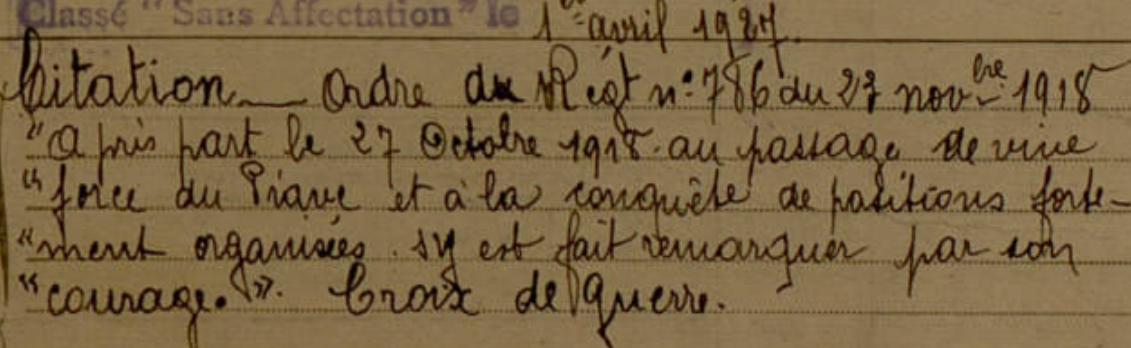 Classé "Sans Affectation" le 1er avril 1927.
Citation _ Ordre du Régt n° 786 du 27 novbre 1918
"A pris part le 27 Octobre 1918 au passage de vive
"force du Piave et à la conquête de positions forte-
"ment organisées. s'y est fait remarquer par son
"courage.". Croix de Guerre.